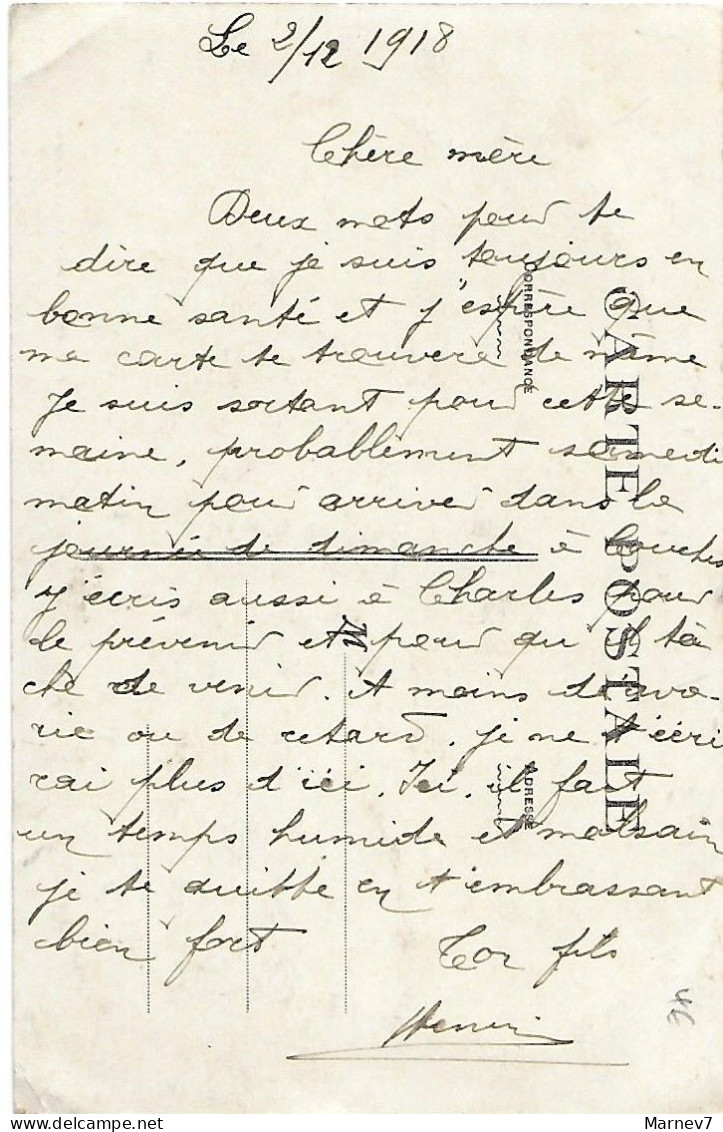 Le 2/12 1918
Chère mère
Deux mots pour te
dire que je suis toujours en
bonne santé et j'espère que
ma carte te trouvera de même
Je suis sortant pour cette se-
maine, probablement samedi
matin pour arriver dans la
journée de dimanche à Couches
j'écris aussi à Charles pour
le prévenir et pour qu'il tâ
che de venir. A moins d'ava-
rie ou de retard, je ne t'écri
rai plus d'ici. Ici, il fait
un temps humide et malsain
je te quitte en t'embrassant
bien fort Ton fils
Henri
CARTE POSTALE
CORRESPONDANCE
ADRESSE
M
Marnev7